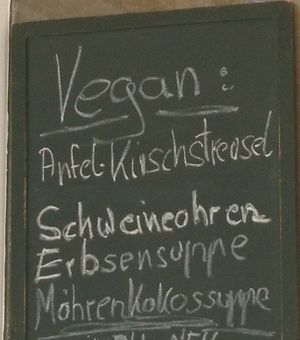 Vegan:
Apfel-Kirschstreusel
Schweineohren
Erbsensuppe
Möhrenkokossuppe